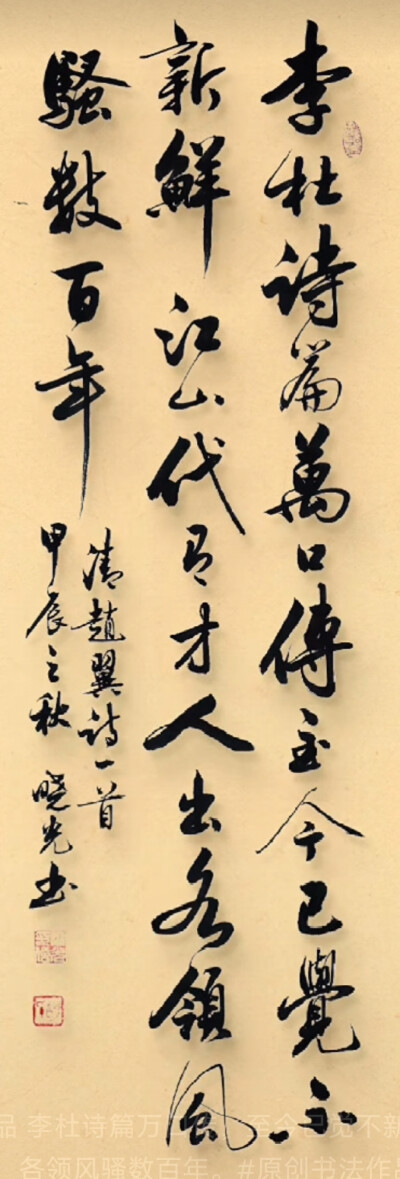 李杜詩篇萬口傳至今已覺不
新鮮江山代有才人出各領風
騷數百年
清趙翼詩一首
甲辰之秋 曉光书
品 李杜诗篇万
至今已觉不新
各领风骚数百年。#原创书法作品